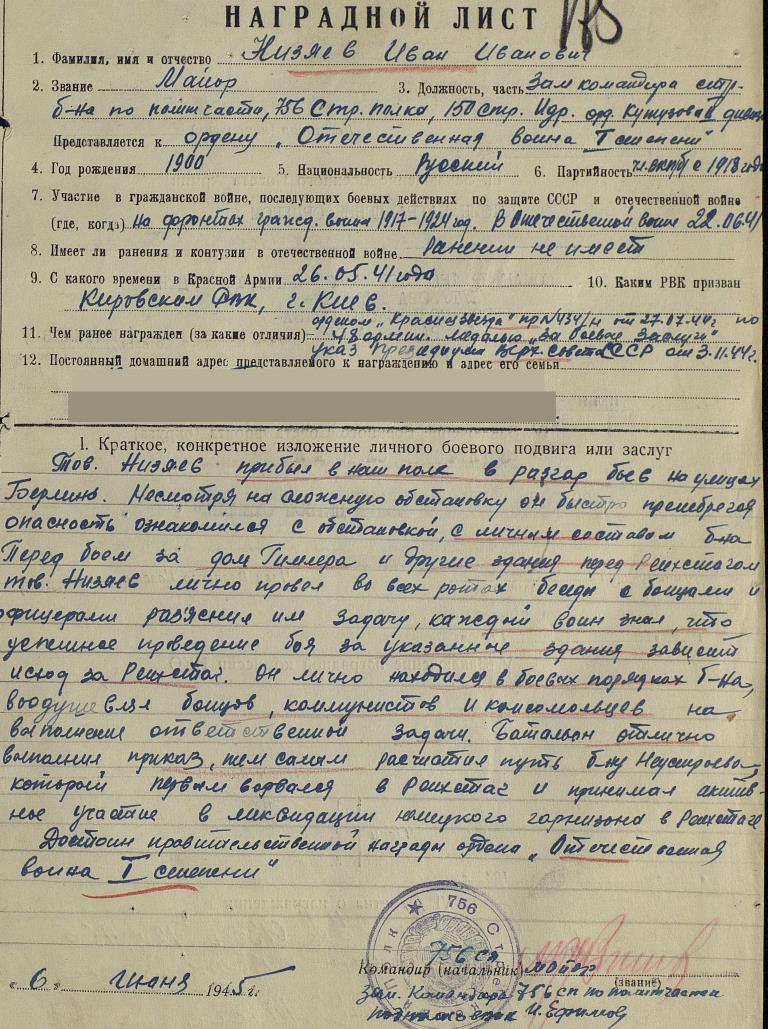 НАГРАДНОЙ ЛИСТ 178
1. Фамилия, имя и отчество Низяев Иван Иванович
2. Звание Майор 3. Должность, часть Зам командира стр.
б-на по политчасти, 756 Стр. полка, 150 стр. Идр. орд. Кутузова II
Представляется к ордену „Отечественная война I степени"
4. Год рождения 1900 5. Национальность Русский 6. Партийность чл. вкпб с 1918 года
7. Участие в гражданской войне, последующих боевых действиях по защите СССР и отечественной войне
(где, когда) на фронтах гражд. войны 1917-1924 год. В Отечественной войне 22.06.41
8. Имеет ли ранения и контузии в отечественной войне Ранений не имеет
9. С какого времени в Красной Армии 26.05.41 года 10. Каким РВК призван
Кировским Рвк, г. Киев.
орденом „Красная звезда" пр №434/н от 27.07.44г. по
11. Чем ранее награжден (за какие отличия) 48 армии. Медалью „за боевые заслуги"
указ Президиума Верх. Совета СССР от 3.11.44г.
12. Постоянный домашний адрес представляемого к награждению и адрес его семьи
1. Краткое, конкретное изложение личного боевого подвига или заслуг
Тов. Низяев прибыл в наш полк в разгар боев на улицах
Берлина. Несмотря на сложную обстановку он быстро пренебрегая
опасность ознакомился с обстановкой, с личным составом б-на
Перед боем за дом Гимлера и другие здания перед Рейхстагом
тов. Низяев лично провел во всех ротах беседы с бойцами и
офицерами раз'яснил им задачу, каждый воин знал, что
успешное проведение боя за указанные здания зависит
исход за Рейхстаг. Он лично находился в боевых порядках б-на,
воодушевлял бойцов, коммунистов и комсомольцев на
выполнение ответственной задачи. Батальон отлично
выполнил приказ, тем самым расчистил путь б-ну Неустроева,
который первым ворвался в Рейхстаг и принимал актив-
ное участие в ликвидации немецкого гарнизона в Рейхстаге
Достоин правительственной награды ордена „Отечественная
война I степени"
756 Стр
756 сп
Командир (начальник) майор
(звание)
„6" июня 1945 г.
Зам. Командира 756 сп по политчасти
подполковник И. Ефимов